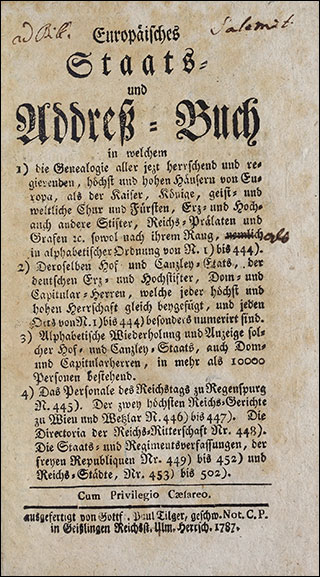 ad Bibl. Salemit.
Europäisches
Staats-
und
Addreß-Buch
in welchem
1) die Genealogie aller jezt herrschend und re-
gierenden, höchst und hohen Häusern von Eu-
ropa, als der Kaiser, Könige, geist- und
weltliche Chur und Fürsten, Erz- und Hoch-
auch andere Stifter, Reichs-Prälaten und
Grafen ꝛc. sowol nach ihrem Rang, nemlich als
in alphabetischer Ordnung von N. 1) bis 444).
2) Deroselben Hof- und Canzley-Etats, der
deutschen Erz- und Hochstifter, Dom- und
Capitular-Herren, welche jeder höchst und
hohen Herrschaft gleich beygefügt, und jeden
Orts von N. 1) bis 444) besonders numerirt sind.
3) Alphabetische Wiederholung und Anzeige sol-
cher Hof- und Canzley-Staats, auch Dom-
und Capitularherren, in mehr als 10000
Personen bestehend.
4) Das Personale des Reichstags zu Regenspurg
N. 445). Der zwey höchsten Reichs-Gerichte
zu Wien und Wetzlar N. 446) bis 447). Die
Directoria der Reichs-Ritterschaft Nr. 448).
Die Staats- und Regimentsverfassungen, der
freyen Republiquen Nr. 449) bis 452) und
Reichs-Städte, Nr. 453) bis 502).
Cum Privilegio Cæsareo.
ausgefertigt von Gottf. Paul Tilger, geschw. Not. C. P.
in Geißlingen Reichsst. Ulm. Herrsch. 1787.